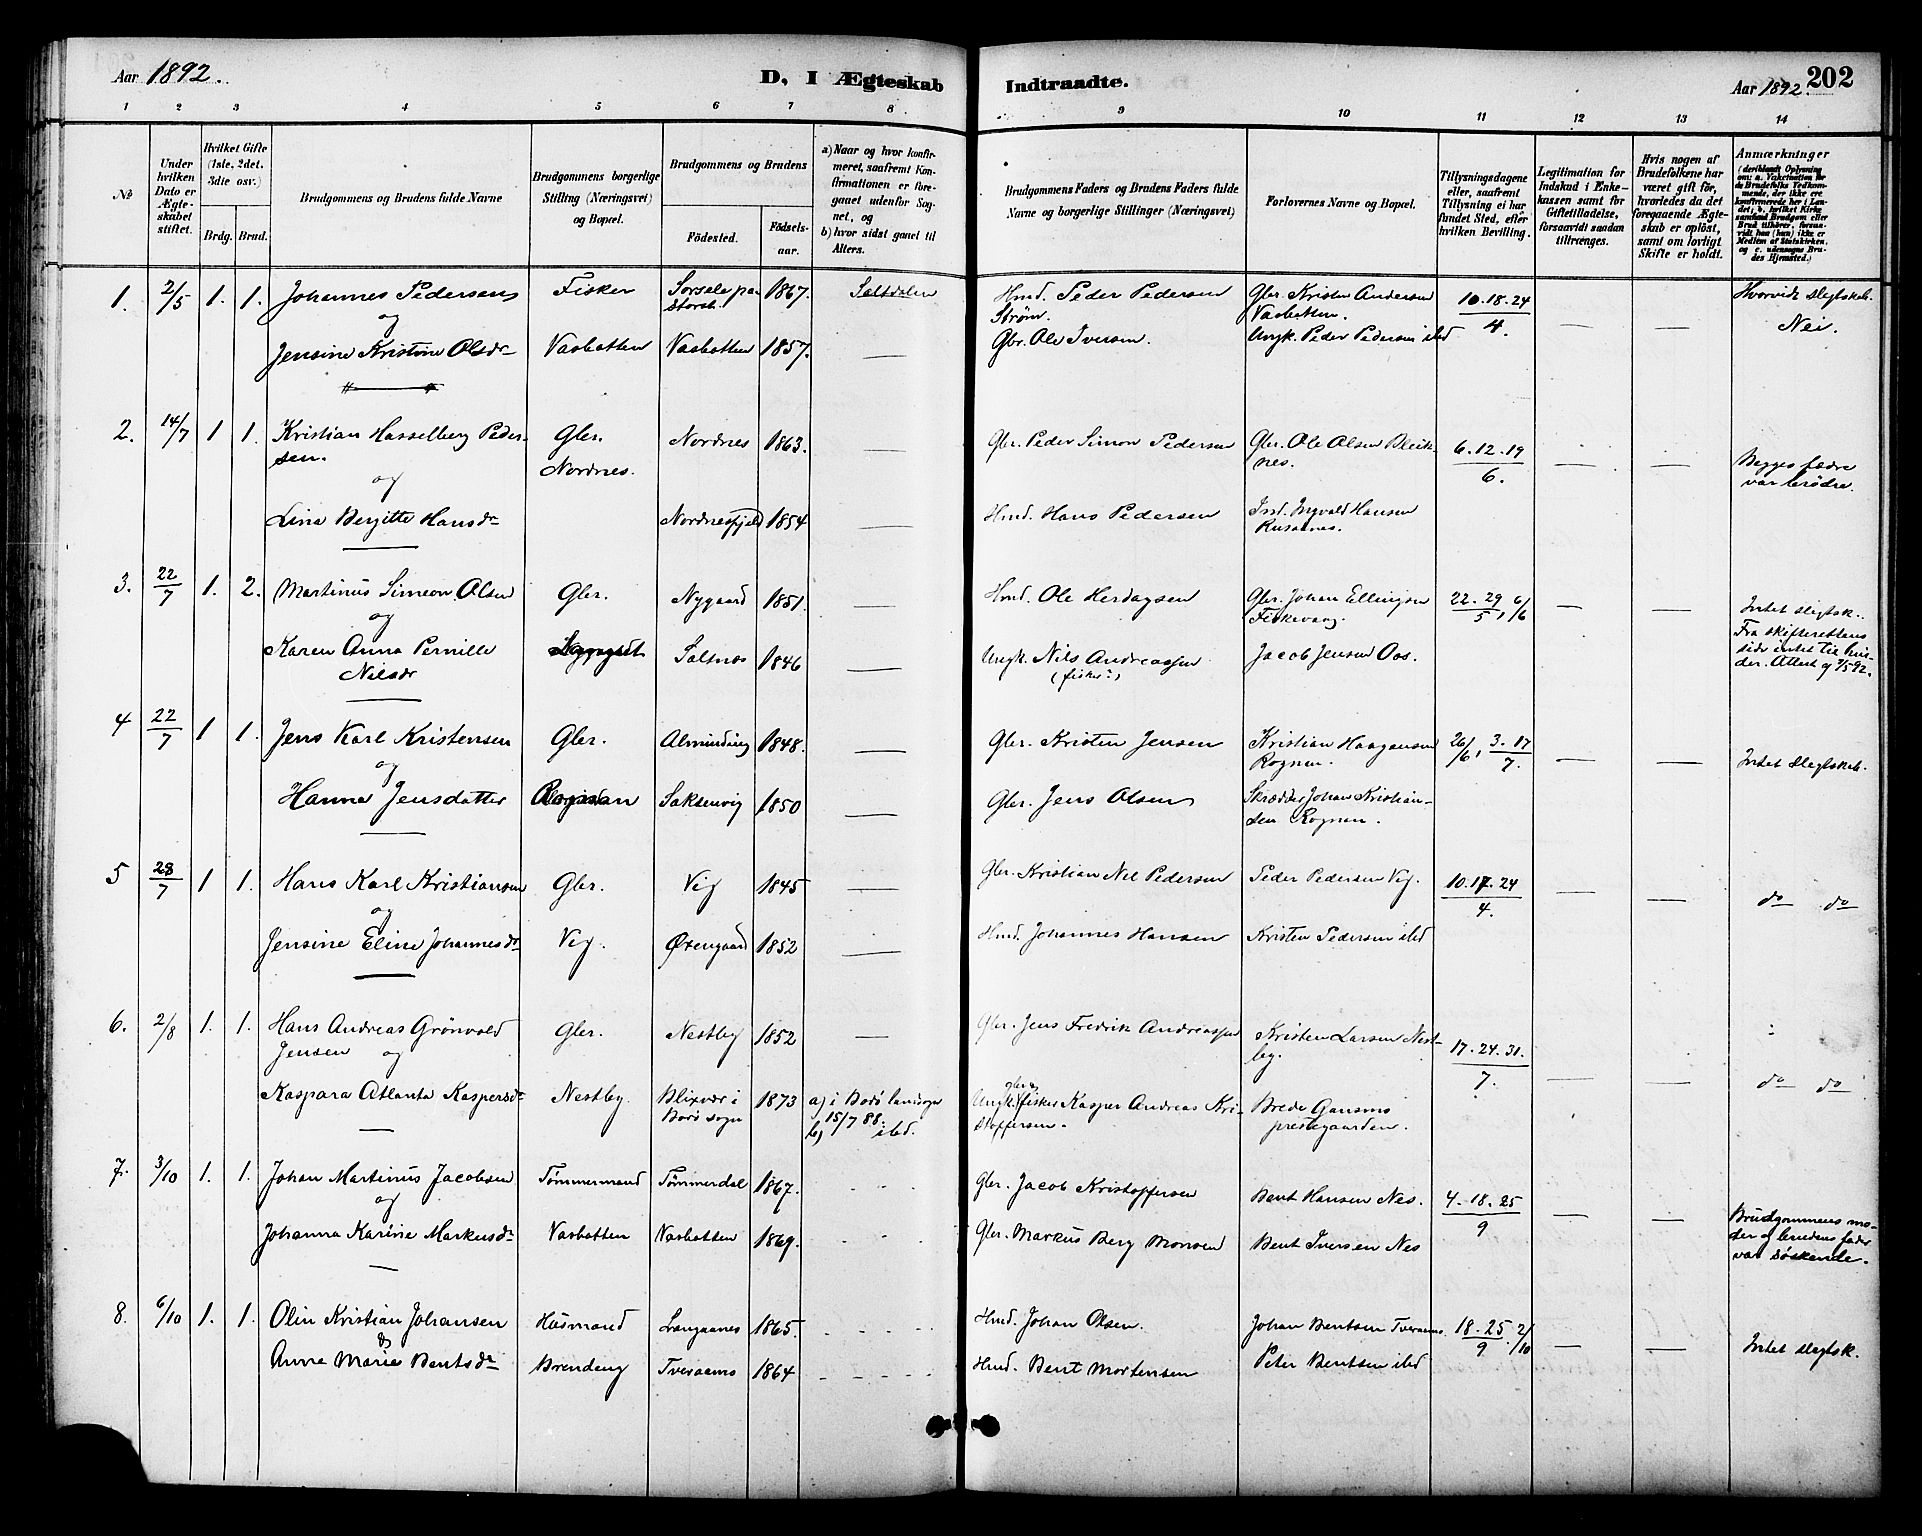 Aar 1892.
D, I Ægteskab Indtraadte.
Aar 1892. 202
1 2 3 4 5 6 7 8 9 10 11 12 13 14
No
Under hvilken Dato er Ægteskabet stiftet.
Hvilket Gifte (1ste, 2det, 3die osv.)
Brdg. Brud.
Brudgommens og Brudens fulde Navne
Brudgommens borgerlige Stilling (Næringsvei) og Bopæl.
Brudgommens og Brudens
Fødested. Fødselsaar.
a) Naar og hvor konfirmeret, saafremt Konfirmationen er foregaaet udenfor Sognet, og
b) hvor sidst gaaet til Alters.
Brudgommens Faders og Brudens Faders fulde Navne og borgerlige Stillinger (Næringsvei)
Forlovernes Navne og Bopæl.
Tillysningsdagene eller, saafremt Tillysning ei har fundet Sted, efter hvilken Bevilling.
Legitimation for Indskud i Enkekassen samt for Giftetilladelse, forsaavidt saadan tiltrænges.
Hvis nogen af Brudefolkene har været gift før, hvorledes da det foregaaende Ægteskab er opløst, samt om lovligt Skifte er holdt.
Anmærkninger
(deriblandt Oplysning om: a. Vakcination for de Brudefolks Vedkommende, der ikke ere konfirmerede her i Landet; b. hvilket Kirkesamfund Brudgom eller Brud tilhører, forsaavidt han (hun) ikke er Medlem af Statskirken, og c. udensogns Brudes Hjemsted.)
1. 2/5 1. 1. Johannes Pedersen Fisker Sorsele pastorat 1867. Saltdalen Hmd. Peder Pedersen Strøm. Gbr. Kristen Andersen Vasbotten. 10. 18. 24 / 4. — — Hvorvidt slegtskab. Nei.
og
Jensine Kristine Olsdr Vasbotten Vasbotten 1857. — Gbr. Ole Iversen Ungk. Peder Pedersen ibd
2. 14/7 1 1. Kristian Hasselberg Pedersen. Gbr. Nordnes. Nordnes 1863. — Gbr. Peder Simon Pedersen Gbr. Ole Olsen Bleiknes. 6. 12. 19 / 6. — — Begges fædre var brødre.
og
Lina Bergitte Hansdr Nordnesfjeld 1854 — Hmd. Hans Pedersen Ind. Ingvald Hansen Rusaanes.
3. 22/7 1. 2. Martinus Simeon Olsen Gbr. Nygaard 1851. — Hmd. Ole Herdagsen Gbr. Johan Ellingsen Fiskevaag. 22. 29 / 5, 6/6 — — Intet slegtsk. Fra skifterettens side intet til hinder. Attest af 7/5 92.
og
Karen Anna Pernille Nilsdr Saltnes 1846 — Ungk. Nils Andreassen (fisker) Jacob Jensen Oos.
4 22/7 1 1. Jens Karl Kristensen Gbr. Alminding 1848. — Gbr. Kristen Jensen Kristian Haagensen Rognan. 26/6, 3. 17 / 7. — — Intet slegtskab.
og
Hanna Jensdatter Rognan Saksenvig 1850 — Gbr. Jens Olsen Skrædder Johan Kristiansen Rognan.
5 28/7 1 1. Hans Karl Kristiansen Gbr. Vig 1845 — Gbr. Kristian Nil Pedersen Peder Pedersen Vig. 10. 17. 24 / 4. — — do do
og
Jensine Eline Johannesdr Vig. Øxengaard 1852 — Hmd. Johannes Hansen Kristen Pedersen ibd
6. 2/8 1. 1. Hans Andreas Grönvold Jensen Gbr. Nestby 1852 — Gbr. Jens Fredrik Andreassen Kristen Larsen Nestby. 17. 24. 31. / 7. — — do do
og
Kaspara Atlanta Kaspersdr Nestby. Blixvær i Bodö sogn 1873 a) i Bodö landsogn 15/7 88. b) ibd. Ungk. gbr. & fisker Kasper Andreas Kristoffersen. Brede Gansmo prestegaarden.
7. 3/10 1. 1. Johan Martinus Jacobsen Tømmermand Tømmerdal 1867. Gbr. Jacob Kristoffersen Bent Hansen Nes. 4. 18. 25 / 9 — — Brudgommens moder og brudens fader var søskende.
og
Johanna Karine Markusdr Vasbotten Vasbotten 1869. Gbr. Markus Berg Monsen Bent Iversen Nes
8. 6/10 1. 1. Olin Kristian Johansen Husmand Langaanes 1865. Hmd. Johan Olsen. Johan Bentsen Tveraanes. 18. 25 / 9 2/10 — — Intet slegtsk.
&
Anne Marie Bentsdr Brendeng Tveraamo 1864 Hmd. Bent Mortensen Peter Bentsen ibd